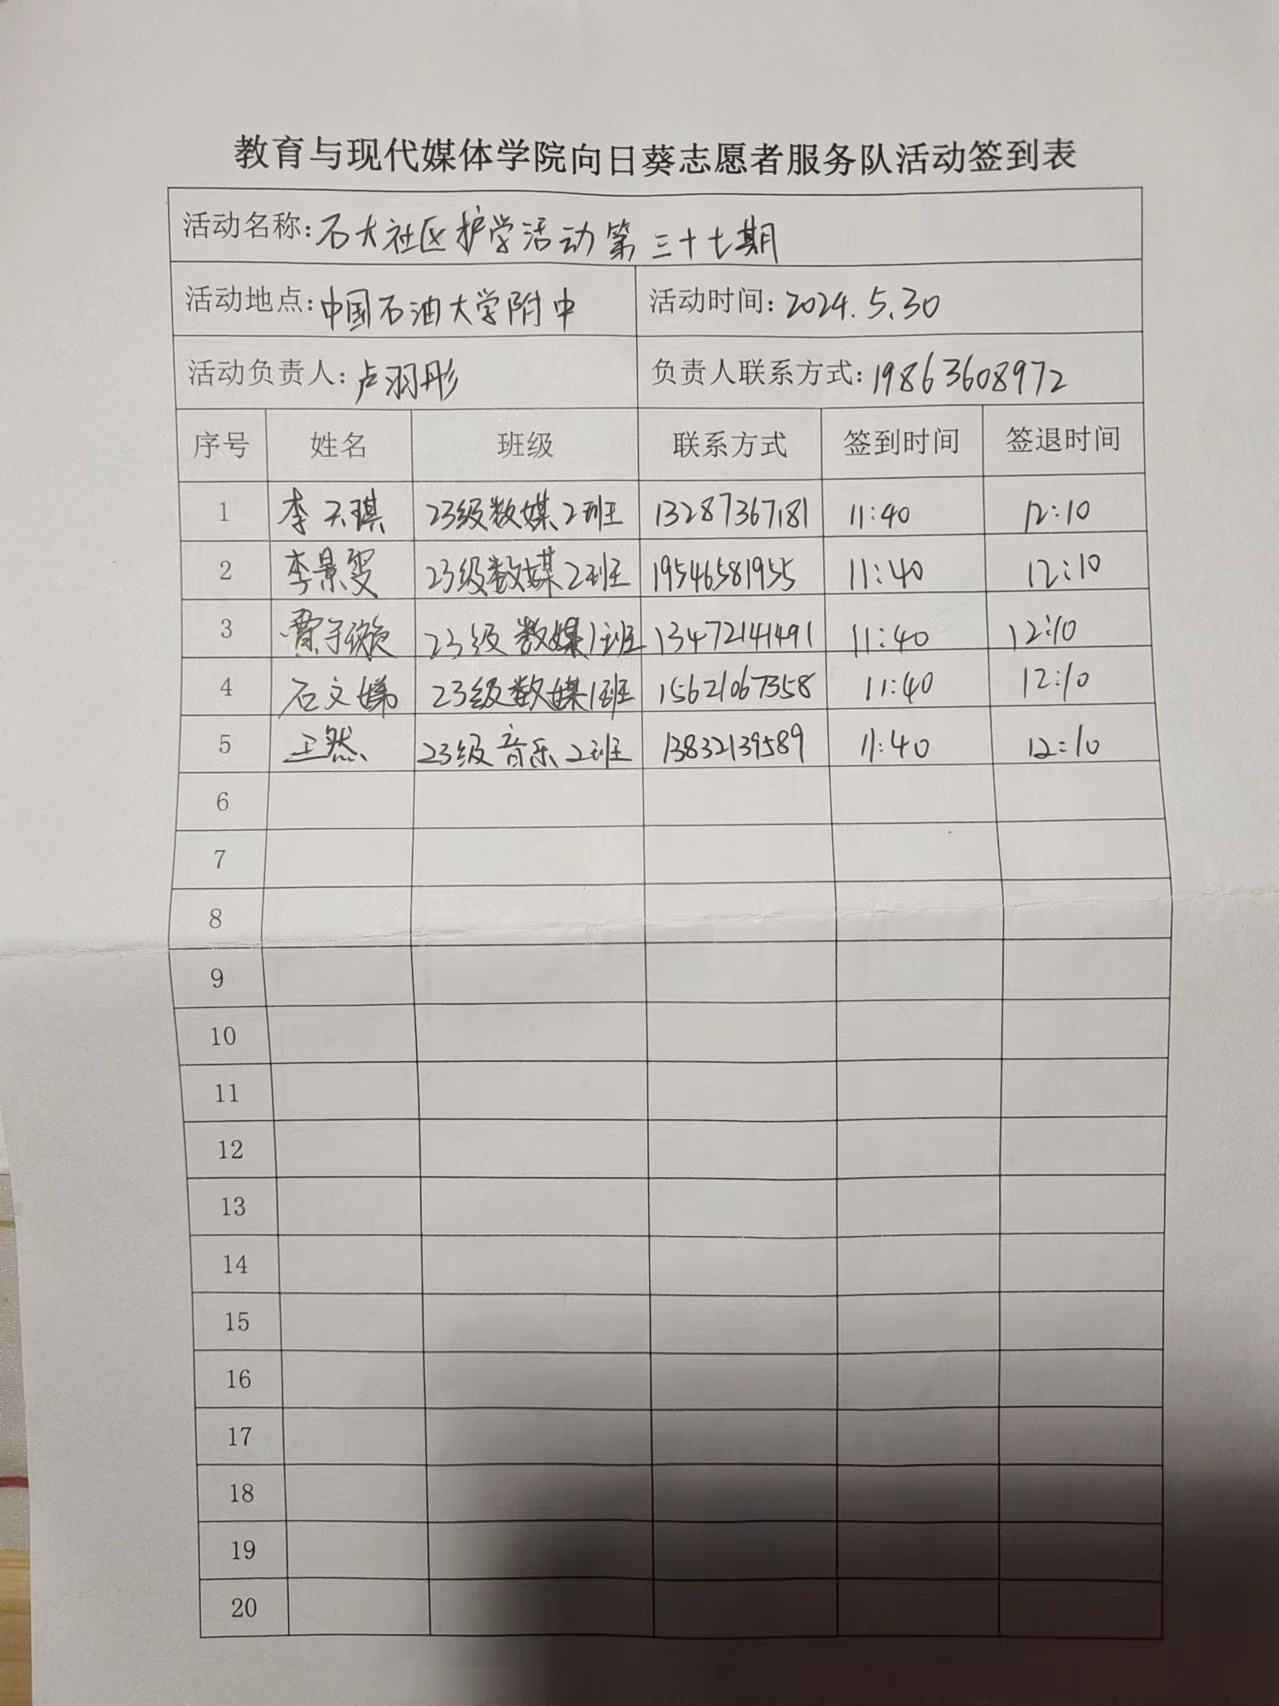 教育与现代媒体学院向日葵志愿者服务队活动签到表
活动名称:石大社区护学活动第三十七期
活动地点:中国石油大学附中 活动时间:2024.5.30
活动负责人:卢羽彤 负责人联系方式:19863608972
序号 姓名 班级 联系方式 签到时间 签退时间
1 李天琪 23级数媒2班 13287367181 11:40 12:10
2 李景雯 23级数媒2班 19546581955 11:40 12:10
3 23级数媒1班 13472141491 11:40 12:10
4 石文娣 23级数媒1班 15621067358 11:40 12:10
5 王然 23级音乐2班 13832139589 11:40 12:10
6
7
8
9
10
11
12
13
14
15
16
17
18
19
20